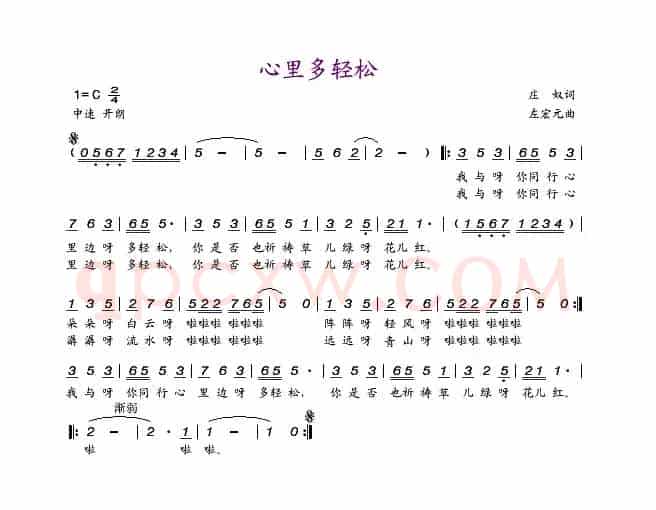 心里多轻松
1=C 2/4 庄 奴词
中速 开朗 左宏元曲
( 0567 1234 | 5 - | 5 - | 5 6 2 | 2 - ) ‖: 3 5 3 | 65 5 3 |
我与呀 你同行心
我与呀 你同行心
7 6 3 | 65 5· | 3 5 3 | 65 51 | 3 2 5 | 21 1· | ( 1567 1234 |
里边呀 多轻松, 你是否 也祈祷草 儿绿呀 花儿红。
里边呀 多轻松, 你是否 也祈祷草 儿绿呀 花儿红。
1 3 5 | 2 7 6 | 522 765 | 5 - | 1 3 5 | 2 7 6 | 522 765 | 5 0 :‖
朵朵呀 白云呀 啦啦啦啦啦 阵阵呀 轻风呀 啦啦啦啦啦
潺潺呀 流水呀 啦啦啦啦啦 远远呀 青山呀 啦啦啦啦啦
3 5 3 | 65 5 3 | 7 6 3 | 65 5· | 3 5 3 | 65 51 | 3 2 5 | 21 1· |
我与呀 你同行心 里边呀 多轻松, 你是否 也祈祷草 儿绿呀 花儿红。
渐弱
‖: 2 - | 2· 1 | 1 - | 1 0 :‖
啦 啦 啦。
qpcxw.COM